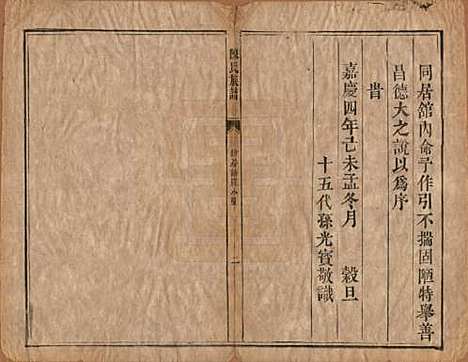 同居舘內侖予作引不揣固陋特舉善
昌德大之說以為序
旹
嘉慶四年己未孟冬月　穀旦
十五代孫光寶敬識
陳氏族譜
一